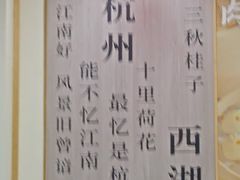 三秋桂子
西湖
十里荷花
杭州
最忆是杭
能不忆江南
江南好 风景旧曾谙